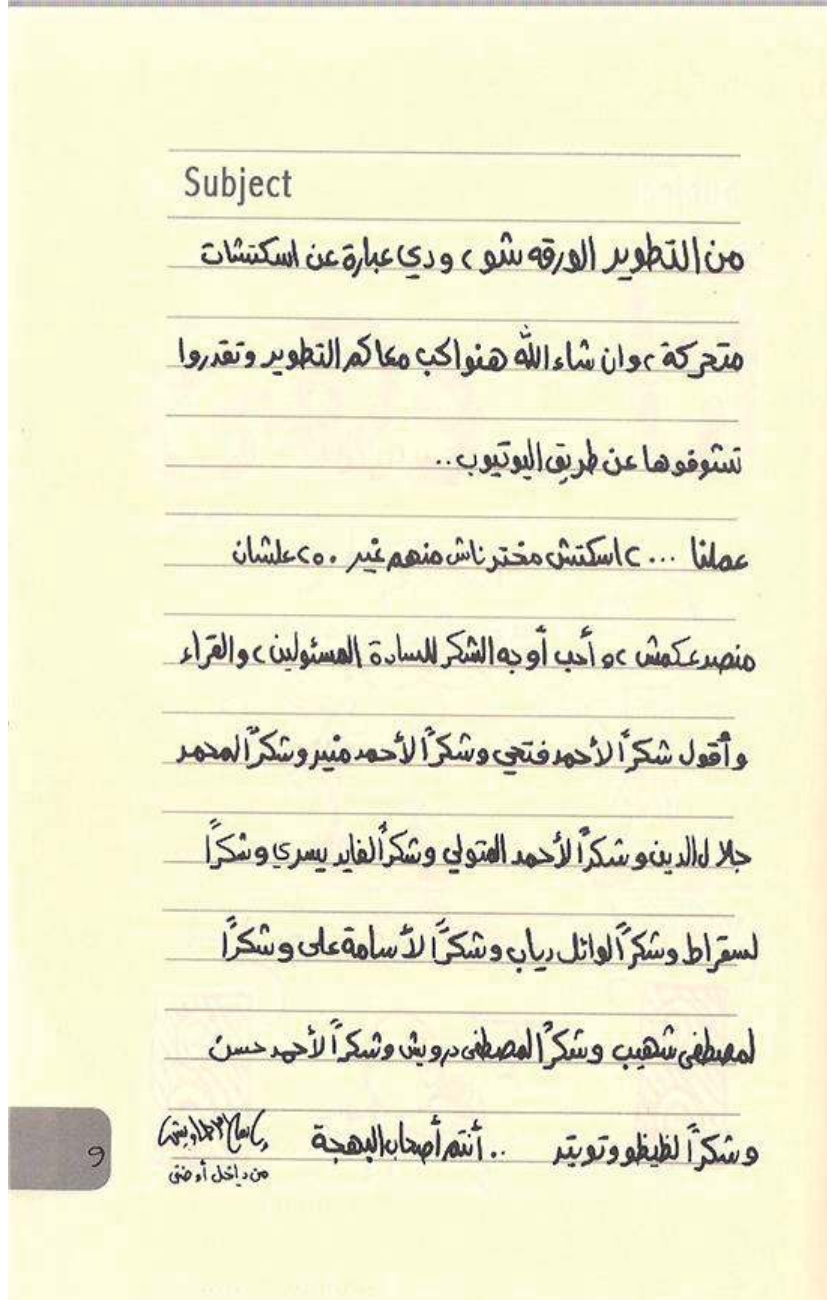 Subject
من التطوير الورقه شو ، ودي عبارة عن اسكتشات
متحركة ، وان شاء الله هنواكب معاكم التطوير وتقدروا
تشوفوها عن طريق اليوتيوب ..
عملنا ٢٠٠٠ اسكتش مخترناش منهم غير ٢٥٠ علشان
منصدعكمش ، و أحب أوجه الشكر للسادة المسئولين ، والقراء
وأقول شكرًا لأحمد فتحي وشكرًا لأحمد منير وشكرًا لمحمد
جلال الدين وشكرًا لأحمد المتولي وشكرًا لفايد يسري وشكرًا
لسقراط وشكرًا لوائل دياب وشكرًا لأسامة على وشكرًا
لمصطفى شهيب وشكرًا لمصطفى درويش وشكرًا لأحمد حسن
وشكرًا لظيظو وتويتر .. أنتم أصحاب البهجة
من داخل أوضتى
9